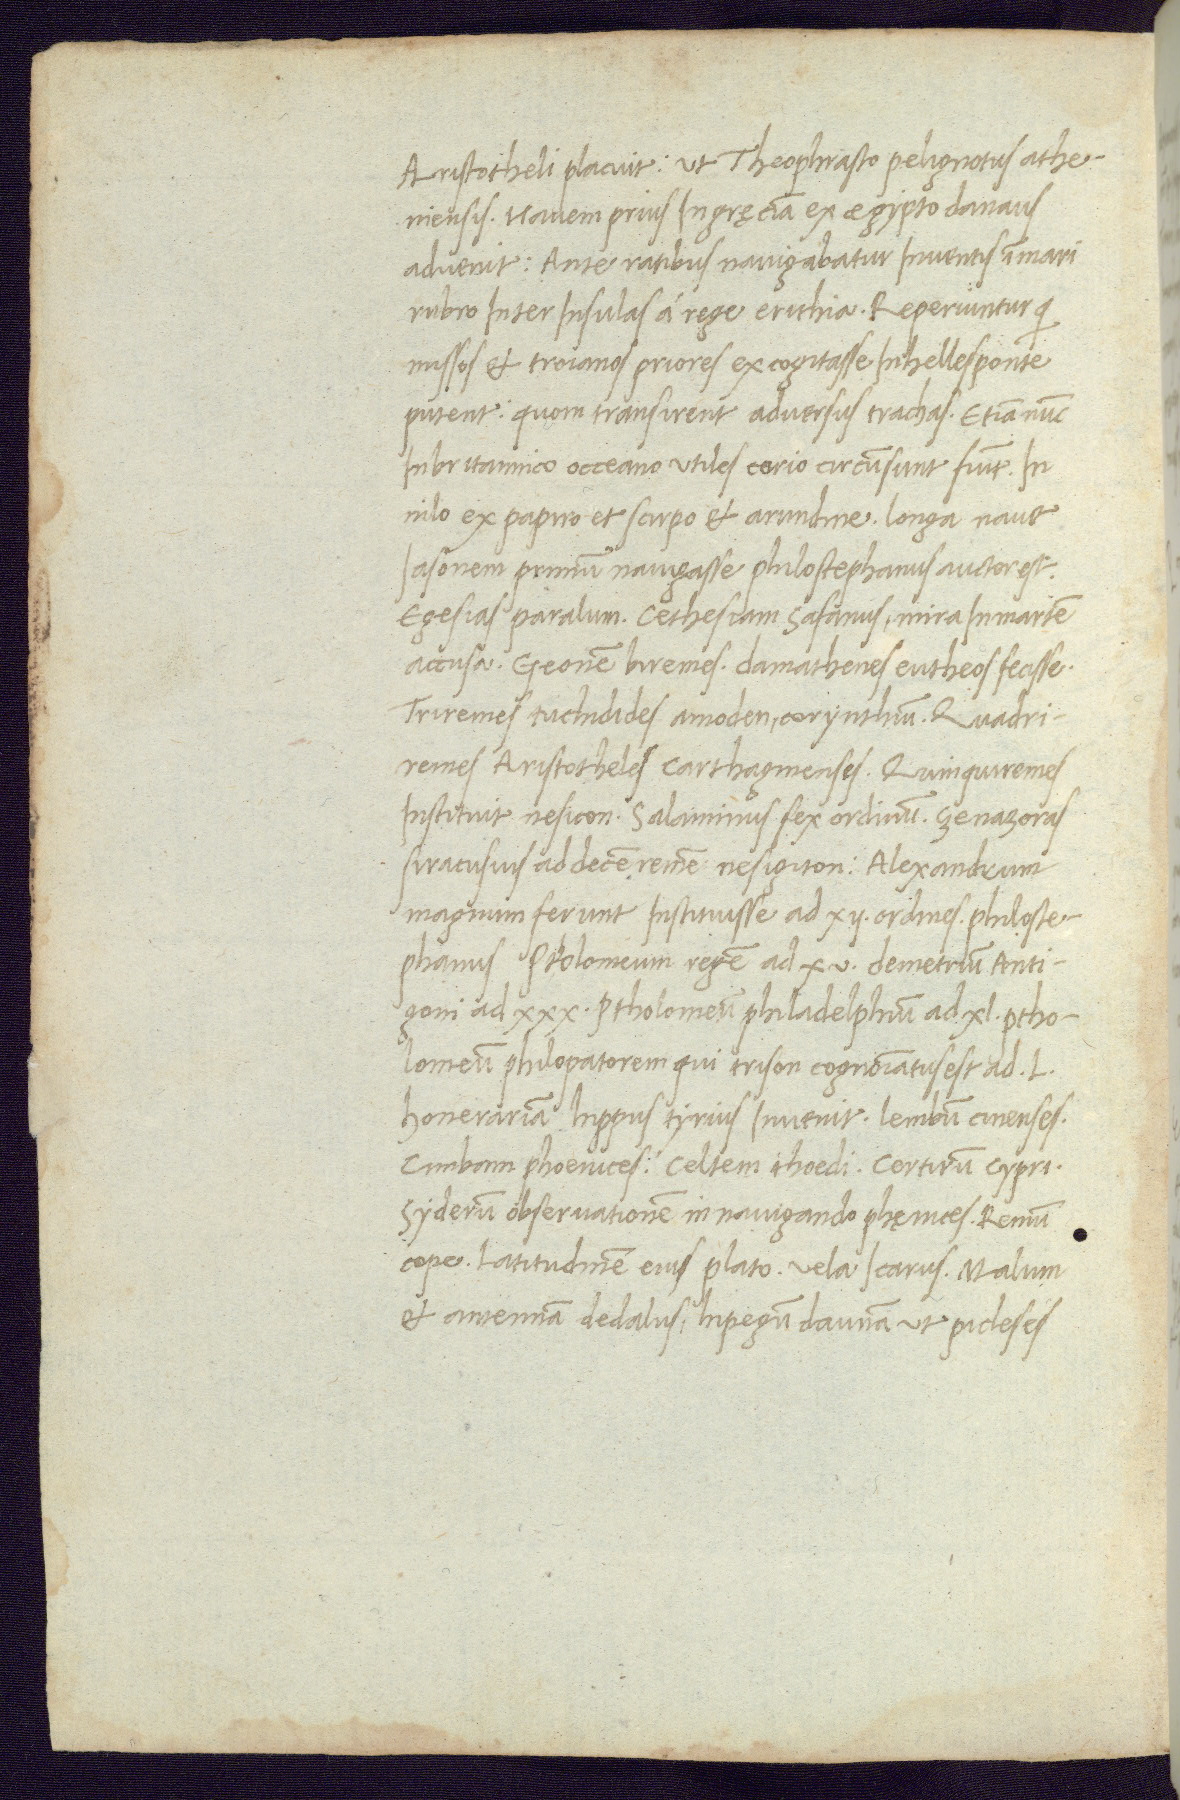 Aristotheli placuit: ut Theophrasto pelignotus athe-
niensis. Navem prius In gręciā ex ægipto danaus
advenit: Ante ratibus navigabatur Inventis ī mari
rubro Inter Insulas á rege erithia. Reperiuntur qi
missos & troianos priores excogitasse In hellesponte
putent: quom transirent adversus trachas. Etiā nūc
In britannico occeano utiles corio circūsunt fiūt. In
nilo ex papiro et scirpo & arundine. longa nave
Iasonem primū navigasse philostephanus auctor est.
Egesias paralum. Cethesiam Safanus, mira In martē
accusa. Geonē biremes. damathenes eutheos fecisse.
Triremes tuchidides amoden, corynthiū. Quadri-
remes Aristotheles Carthaginenses. Quinquiremes
Instituit nesicon. Salaminus sex ordinū. Zenazoras
siracusius ad decē remē nesigiton: Alexandrum
magnum ferunt Instituisse ad xij. ordines. philoste-
phanus Ptolomeum regē ad xv. demetriū Anti-
goni ad xxx. Ptholomeū philadelphiū ad xl. ptho-
lomeū philopatorem qui trison cognoīatus est ad. L.
honerariā hippus tyrius Invenit. lembū cirenses.
Cimbam phoenices: Celtem rhoedi. Certirū cypri.
Syderū observationē in navigando phęnices. Remū
cope. Latitudinē eius plato. vela Icarus. Malum
& antennā dedalus, hipegū daunā ut picleses